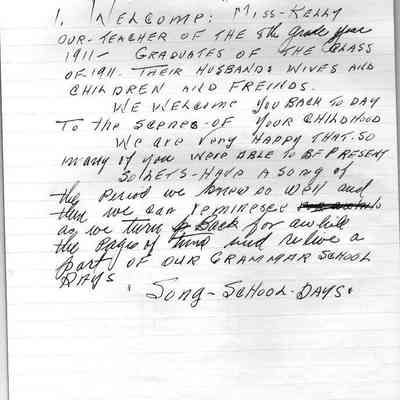 1. WELCOME: MISS-KELLY
OUR-TEACHER OF THE 5th grade year
1911- GRADUATES OF THE CLASS
OF-1911. THEIR HUSBANDS WIVES AND
CHILDREN AND FREINDS.
WE WELCOME YOU BACK TO DAY
TO the SCENES-OF YOUR CHILDHOOD
WE are very HAPPY THAT-SO
many of you WERE ABLE TO BE PRESENT
SO LETS-HAVE A SONG OF
the period we knew so well and
then we can reminesce
as we turn Back for awhile
the Pages of time and relive a
part OF OUR GRAMMAR SCHOOL
DAYS
SONG-SCHOOL-DAYS.